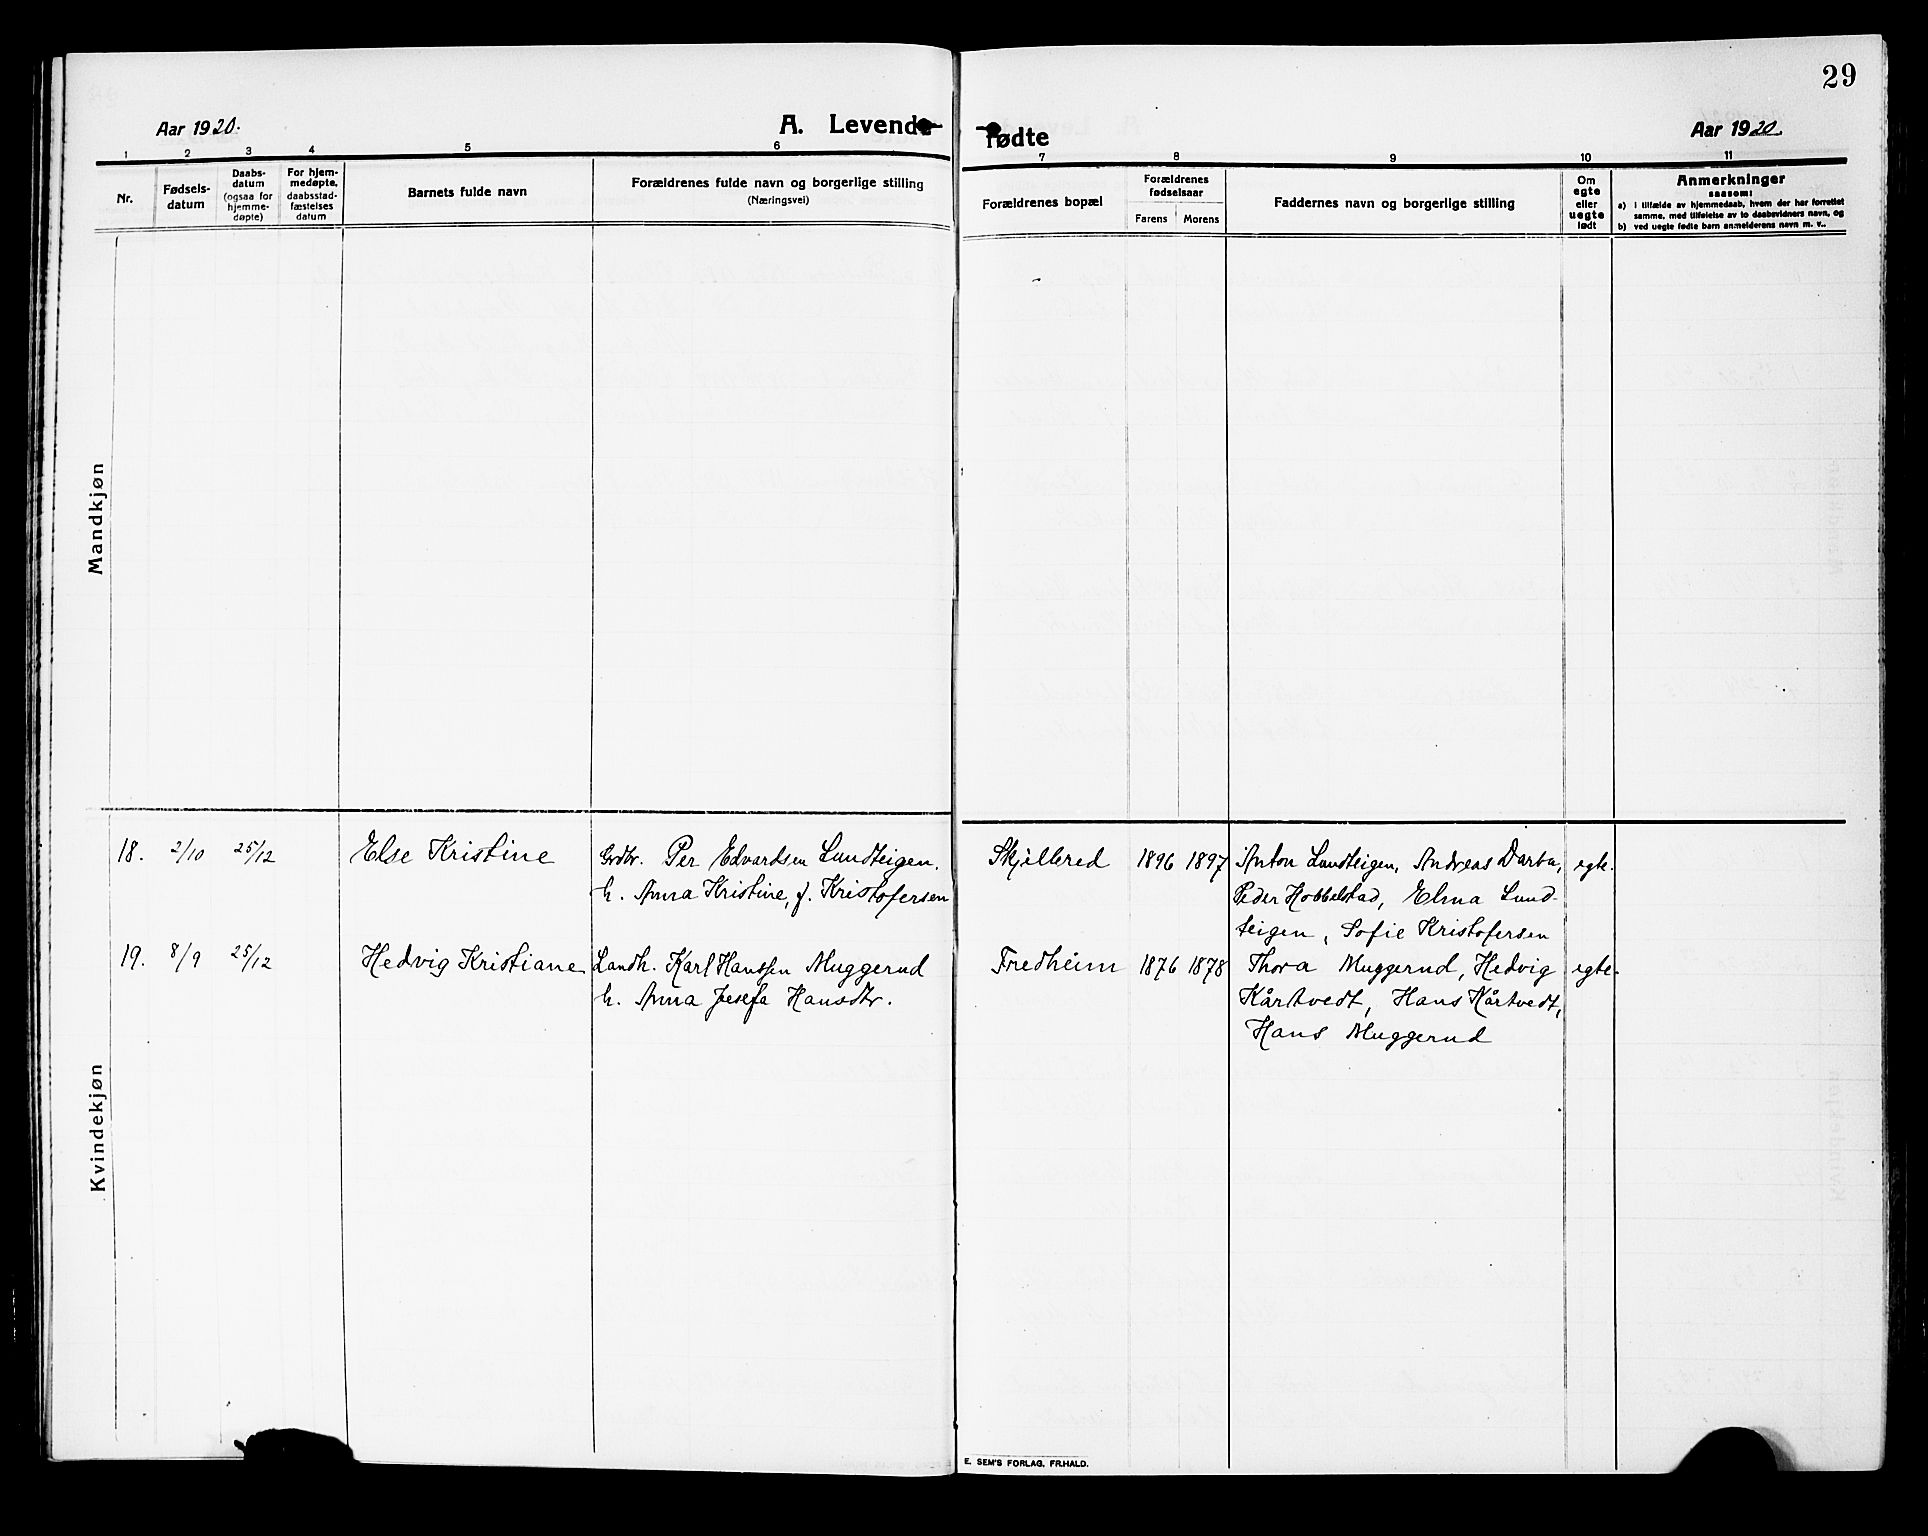 29
Aar 1920.
A. Levende
fødte
Aar 1920.
1 2 3 4 5 6 7 8 9 10 11
Nr.
Fødsels-
datum
Daabs-
datum
(ogsaa for
hjemme-
døpte)
For hjem-
medøpte,
daabsstad-
fæstelses
datum
Barnets fulde navn
Forældrenes fulde navn og borgerlige stilling
(Næringsvei)
Forældrenes bopæl
Forældrenes
fødselsaar
Farens Morens
Faddernes navn og borgerlige stilling
Om
egte
eller
uegte
født
Anmerkninger
saasom:
a) i tilfælde av hjemmedaab, hvem der har forrettet
samme, med tilføielse av to daabsvidners navn, og
b) ved uegte fødte barn anmelderens navn m. v..
Mandkjøn
Kvindekjøn
18. 2/10 25/12 Else Kristine Grdbr. Per Edvardsen Lundteigen. Skjellerød 1896 1897 Anton Lundteigen, Andreas Darbu, egte.
h. Anna Kristine, f. Kristofersen Peder Hobbelstad, Elma Lund-
teigen, Sofie Kristofersen
19. 8/9 25/12 Hedvig Kristiane Landh. Karl Hanssen Muggerud Fredheim 1876 1878 Thora Muggerud, Hedvig egte.
h. Anna Josefa Hansdtr. Kårtvedt, Hans Kårtvedt,
Hans Muggerud
E. SEM'S FORLAG. FR.HALD.